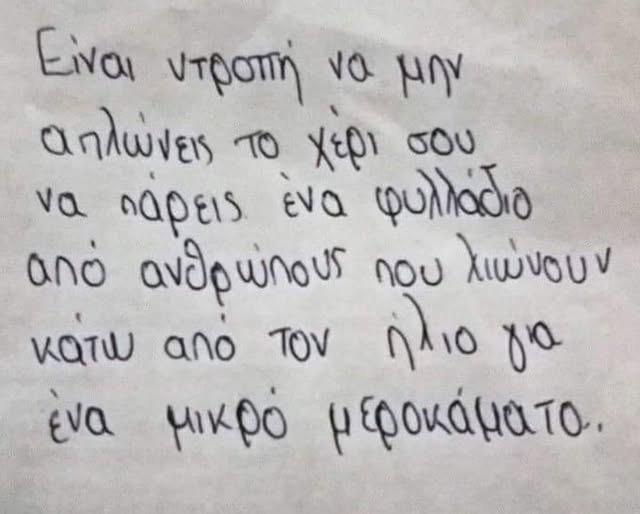 Είναι ντροπή να μην
απλώνεις το χέρι σου
να πάρεις ένα φυλλάδιο
από ανθρώπους που λιώνουν
κάτω από τον ήλιο για
ένα μικρό μεροκάματο..